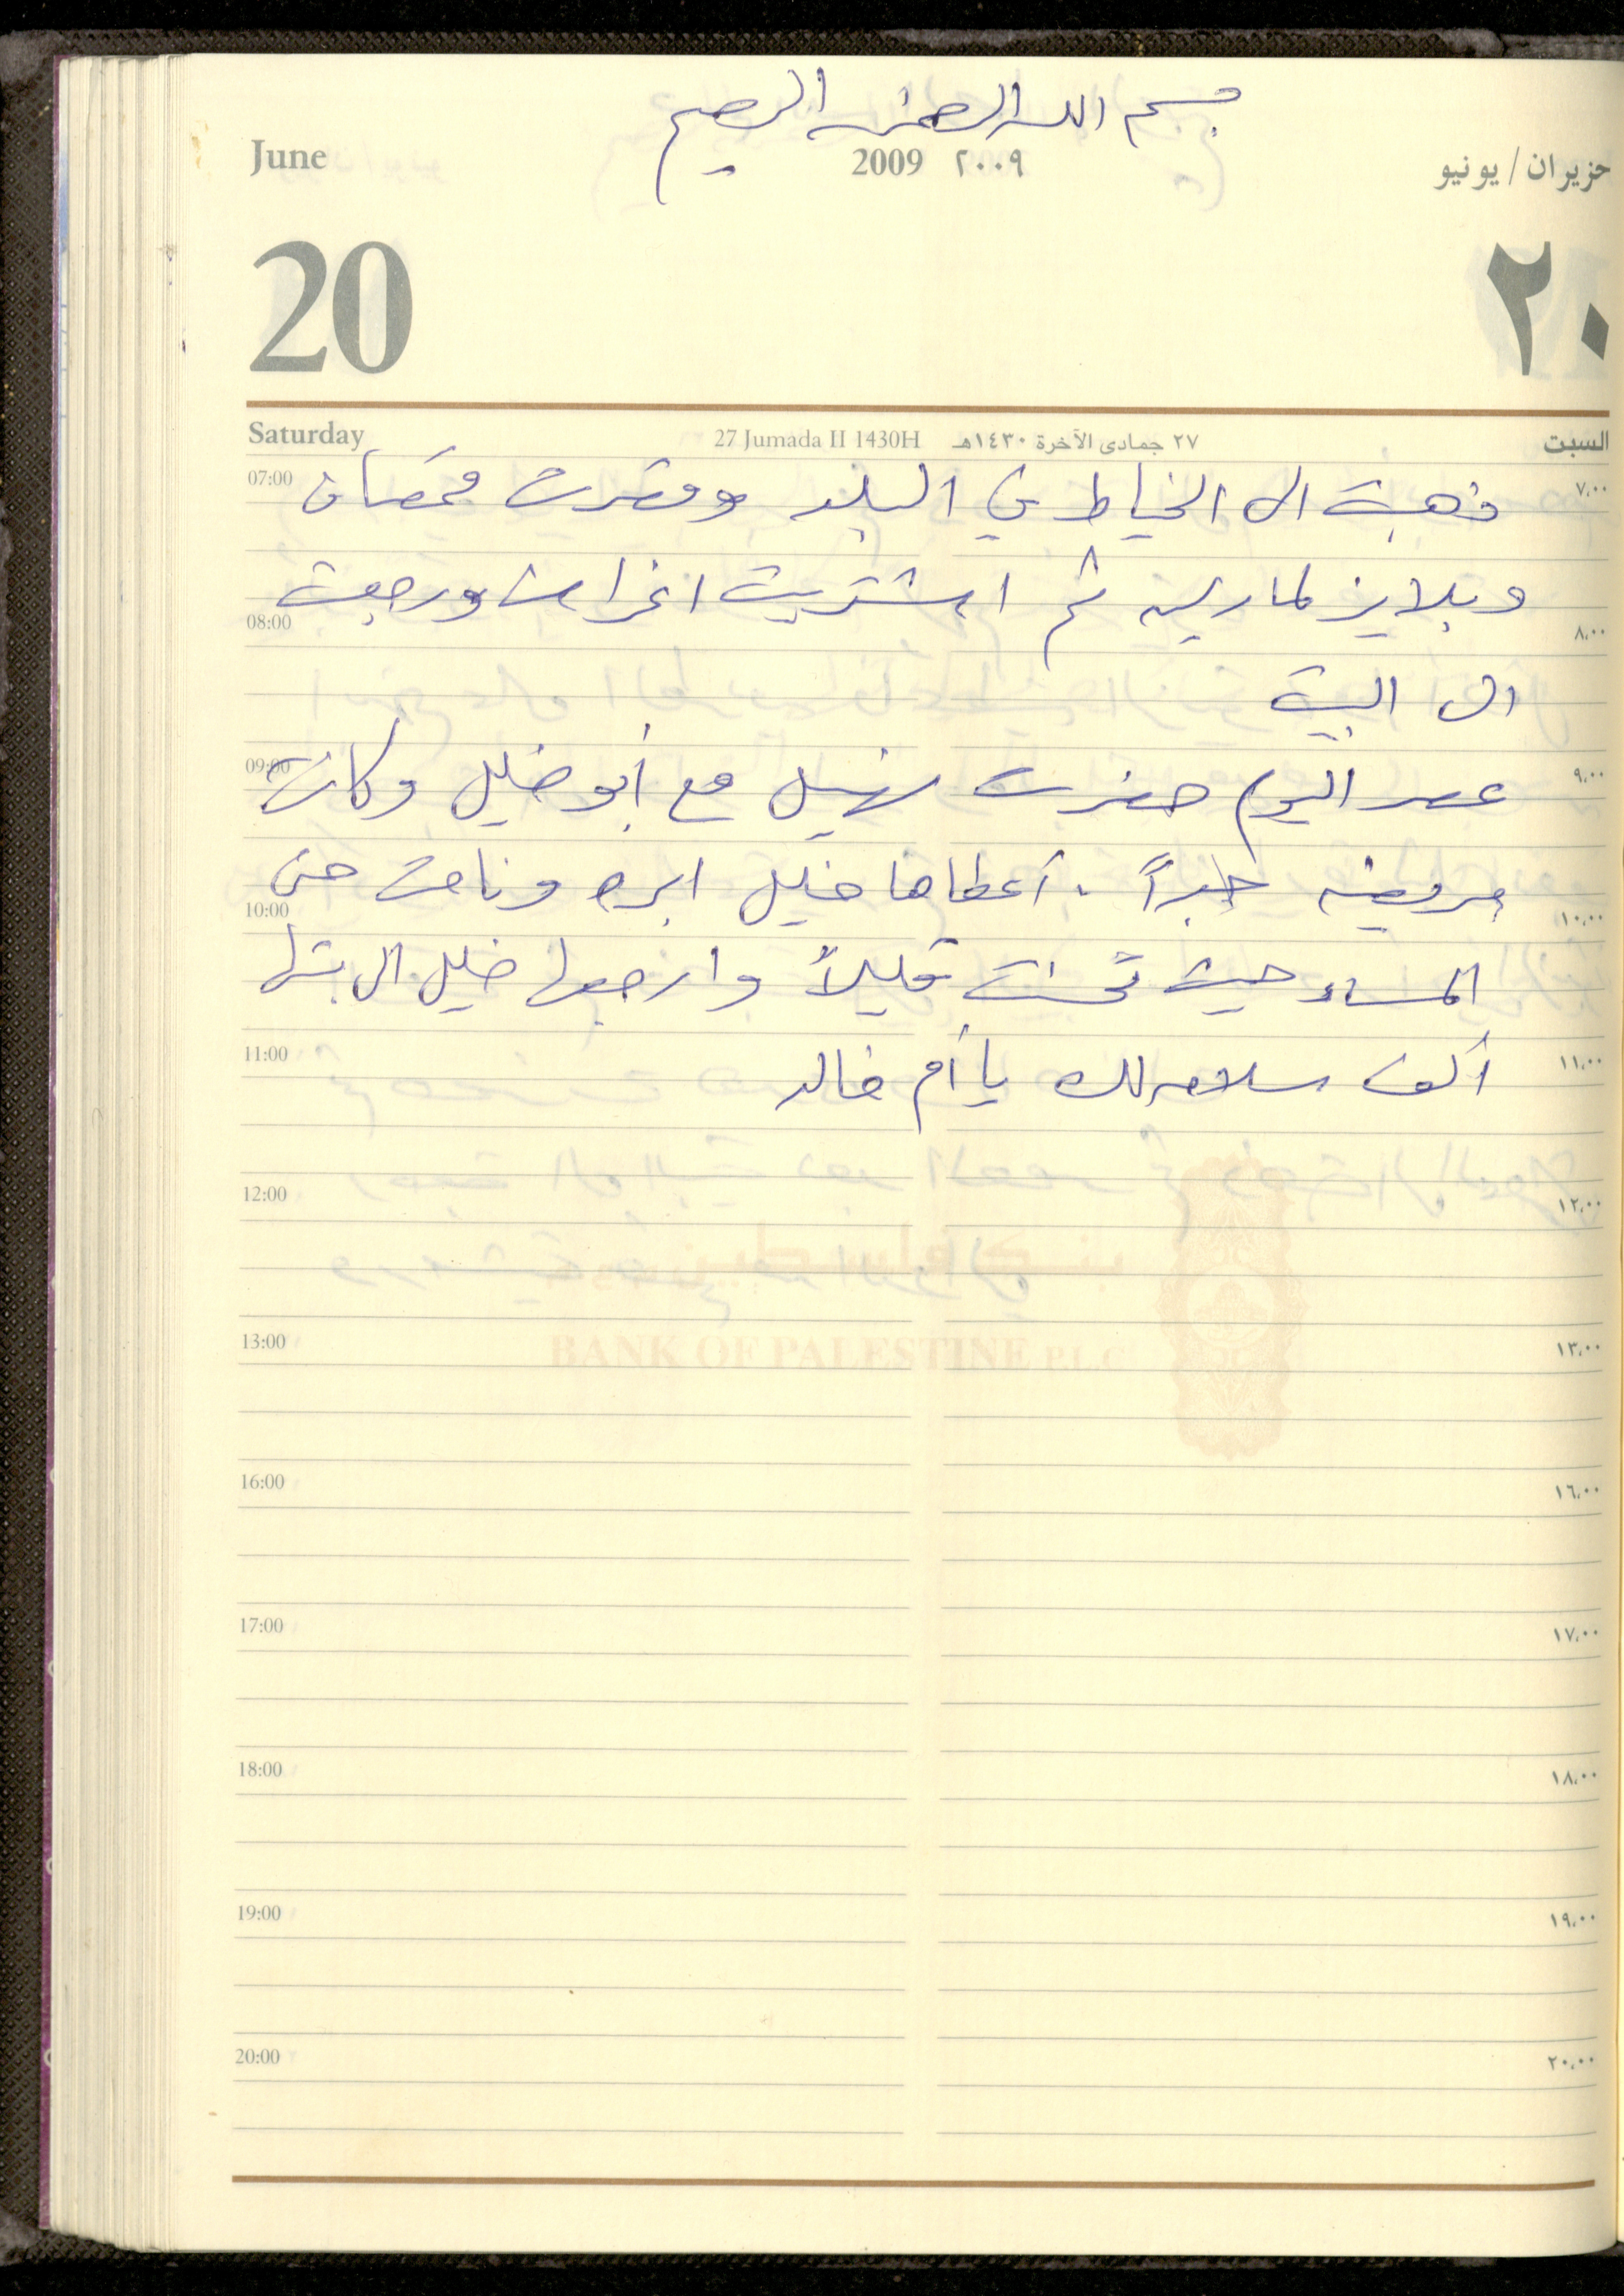 بسم الله الرحمن الرحيم
June 2009 ٢٠٠٩ حزيران / يونيو
20 ٢٠
Saturday 27 Jumada II 1430H ٢٧ جمادى الآخرة ١٤٣٠هـ السبت
07:00 ذهبت الى الخياط في البلد وقصرت قمصان ٧،٠٠
وبلايز لمارين ثم اشتريت اغراض ورجعت
08:00 ٨،٠٠
الى البيت
09:00 عصر اليوم حضرت نهيل مع أبو خليل وكانت ٩،٠٠
مريضه جداً . أعطاها خليل ابره ونامت حتى
10:00 ١٠،٠٠
المساء حيث تحسنت قليلاً وارجعها خليل الى بيتها
11:00 ألف سلامه لك يا أم خالد ١١،٠٠
12:00 ١٢،٠٠
بنك فلسطين
13:00 BANK OF PALESTINE P.L.C ١٣،٠٠
16:00 ١٦،٠٠
17:00 ١٧،٠٠
18:00 ١٨،٠٠
19:00 ١٩،٠٠
20:00 ٢٠،٠٠